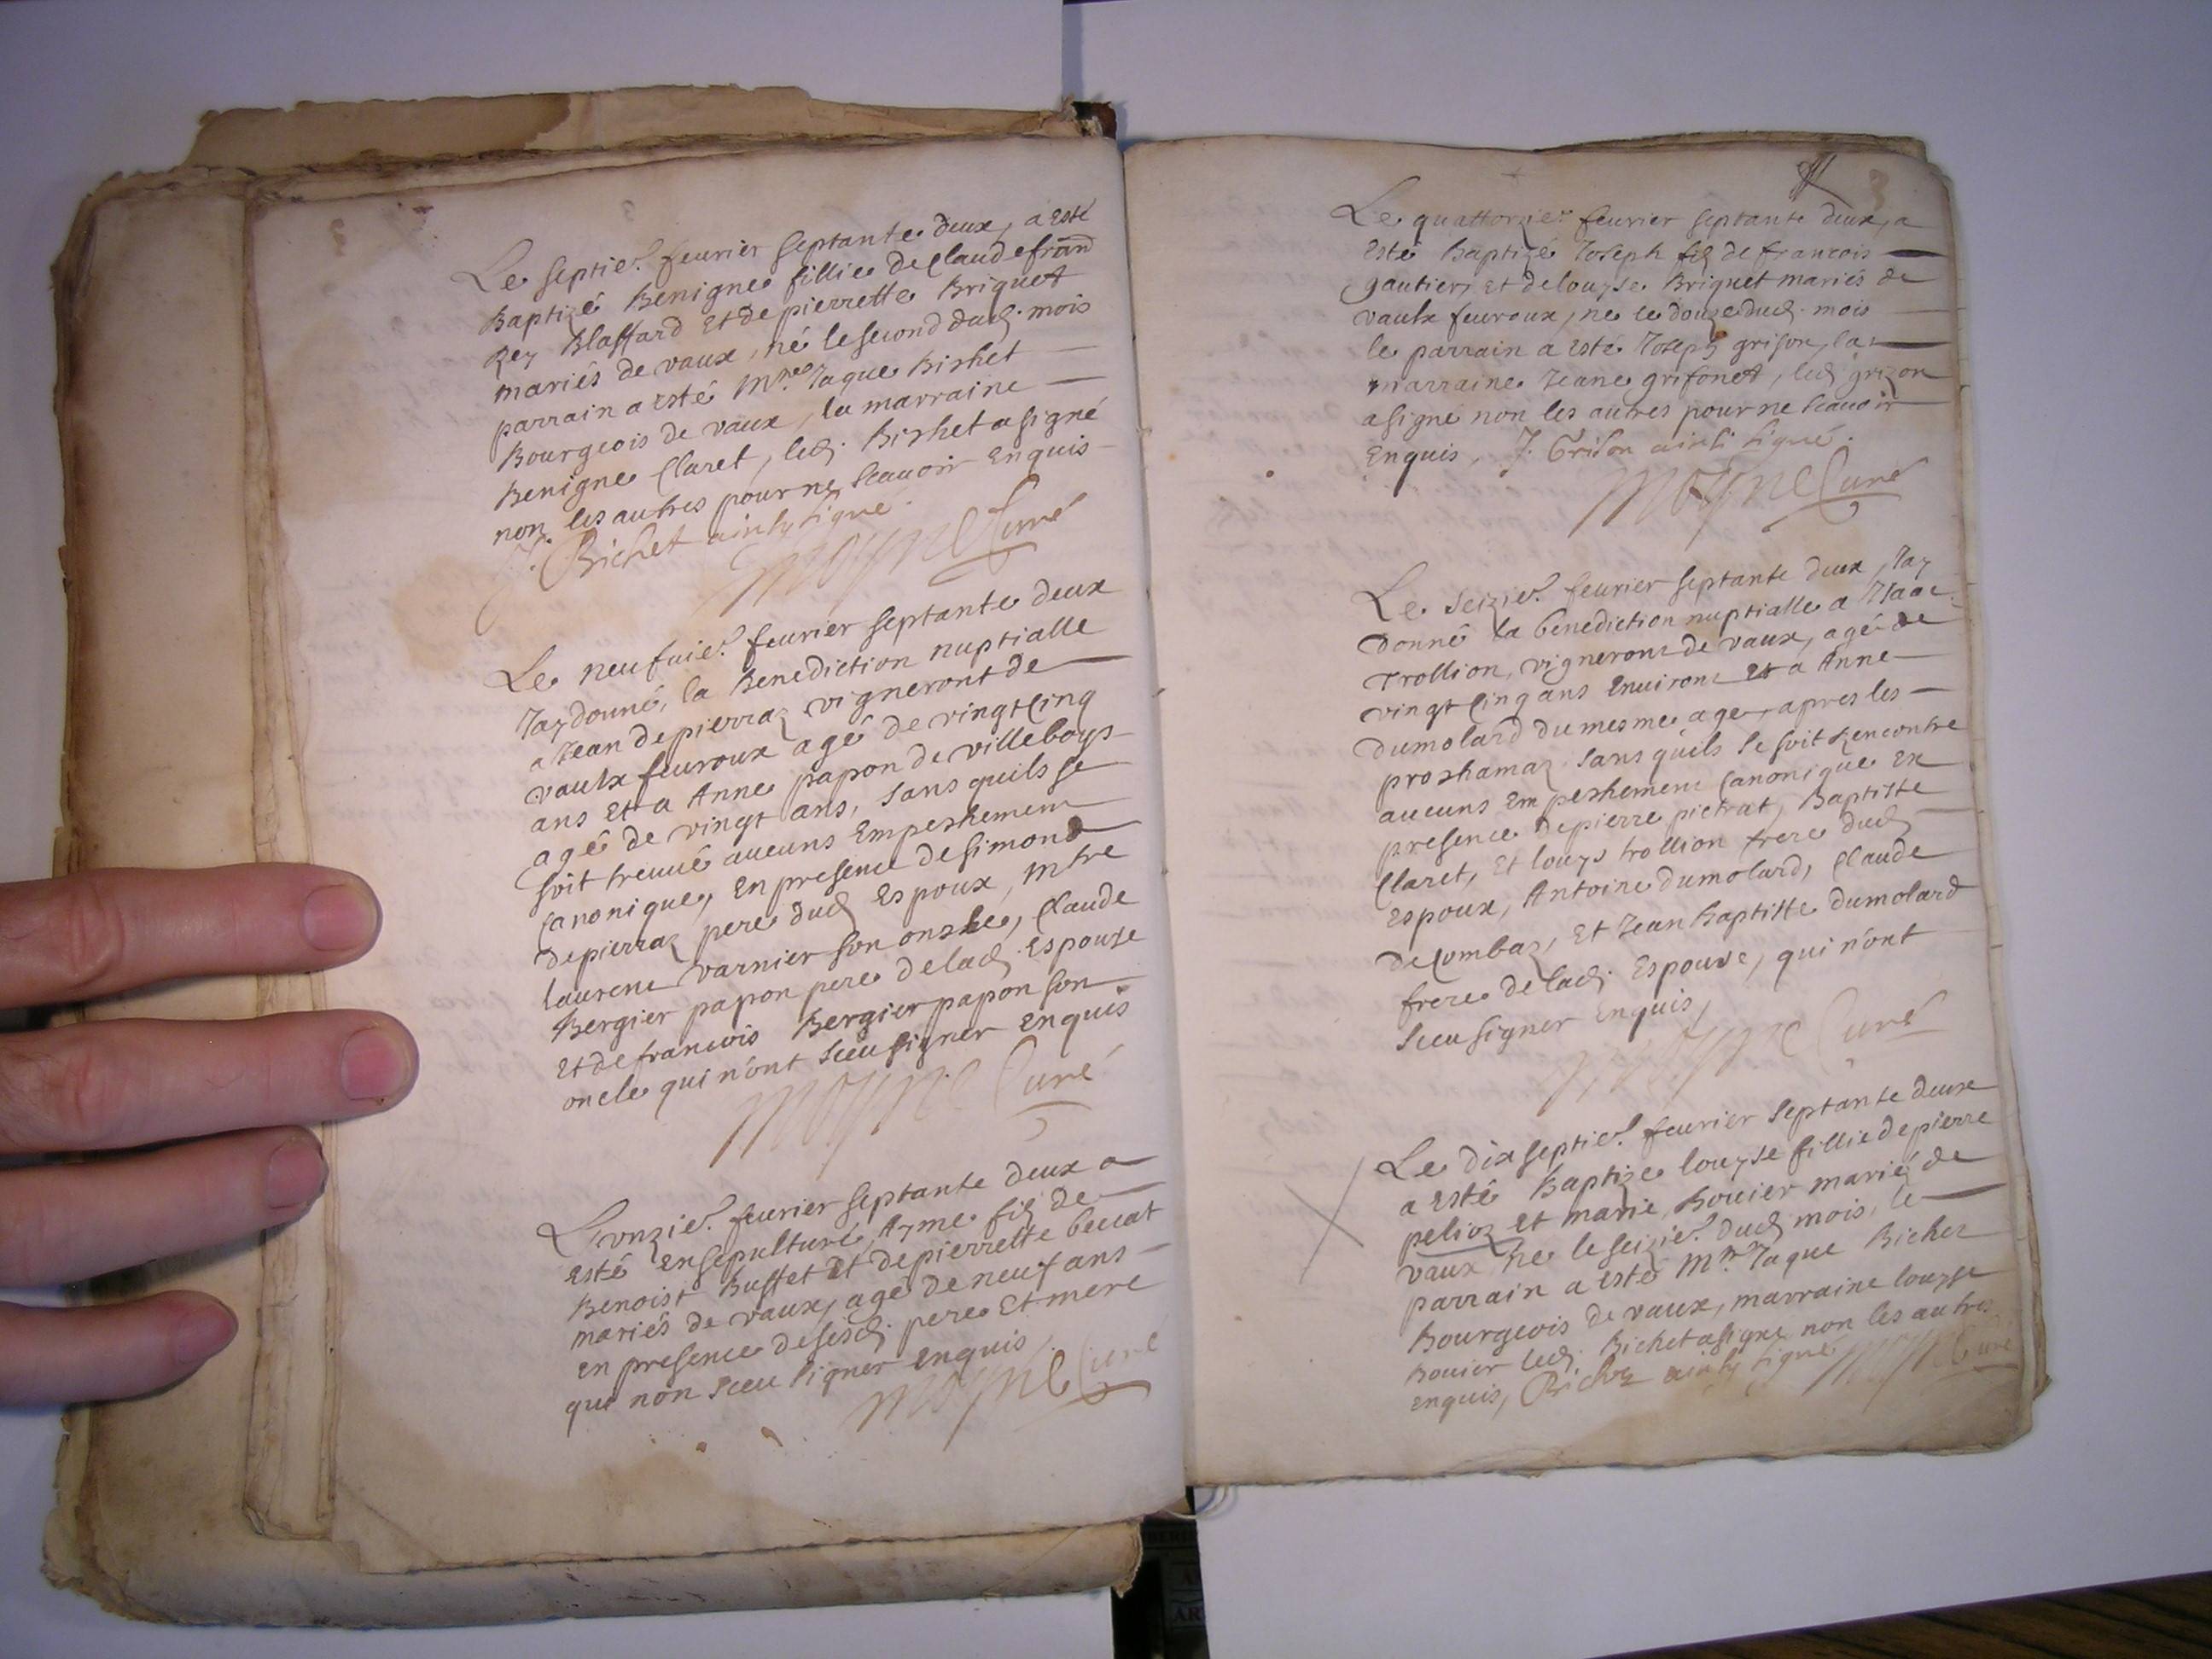 Le septie. feurier septante deux, a esté
Baptizé Benigne fillie de Claude fran
Rey Blaffard Et de pierrette Briquet
mariés de vaux, né le second dud. mois
parrain a esté Mre Jaque Bishet
Bourgeois de vaux, la marraine
Benigne Claret, led. Bishet a signé
non les autres pour ne scauoir Enquis
J. Bichet ainsy signé.
Moyne Curé
Le neufuie. feurier septante deux
Jay donné, la Benediction nuptialle
a Jean depierraz vigneront de
vaulx feuroux agé de vingt Cinq
ans Et a Anne papon de villeboys
agé de vingt ans, sans quils se
soit treuué aucuns Empeshement
Canonique, En presence de simond
depierraz pere dud Espoux, mtre
laurent varnier son onshe, Claude
Bergier papon pere de lad. Espouse
Et de francois Bergier papon son
oncle qui n'ont sceu signer Enquis
Moyne Curé
L'onzie. feurier septante deux a
esté Ensepulturé Ayme filz de
Benoist Buffet Et de pierrette beccat
mariés de vaux, agé de neuf ans
en presence de sesd. pere Et mere
qui non sceu signer Enquis,
Moyne Curé
3
Le quattorzie. feurier septante deux, a
esté Baptizé Joseph filz de francois
gautier, Et de louyse Briquet mariés de
vaulx feuroux, ne le douze dud. mois
le parrain a esté Joseph grison, la
marraine Jeane grisonet, led. grizon
a signé non les autres pour ne scauoir
Enquis, J. Grison ainsi signé.
Moyne Curé
Le seizie. feurier septante deux, Jay
donné la benediction nuptialle a Isaac
trollion, vigneront de vaux, agé de
vingt Cinq ans Enuiront Et a Anne
dumolard du mesme age, apres les
proshamaz sans qu'ils se soit Rencontre
aucuns Empeshement Canonique En
presence de pierre pictrat, Baptiste
Claret, Et louys trollion frere dud
Espoux, Antoine dumolard, Claude
de Combaz, Et Jean Baptiste dumolard
frere de lad. Espouse, qui n'ont
sceu signer Enquis,
Moyne Curé
Le dixseptie. feurier septante deux
a esté Baptize louyse fillie de pierre
pelioz Et marie Bouier marié de
vaux ne le seizie. dud. mois, le
parrain a esté Mre Jaque Bichet
Bourgeois de vaux, marraine louyse
Bouier led. Bichet a signe non les autres
enquis, Bichet ainsy signé Moyne Curé